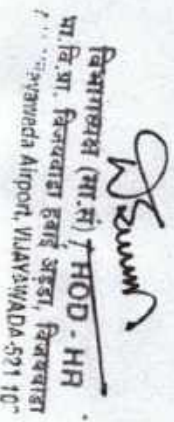 विभागाध्यक्ष (मा.सं) / HOD - HR
भा.वि.प्रा. विजयवाडा हवाई अड्डा, विजयवाडा
Airport, VIJAYAWADA-521 10